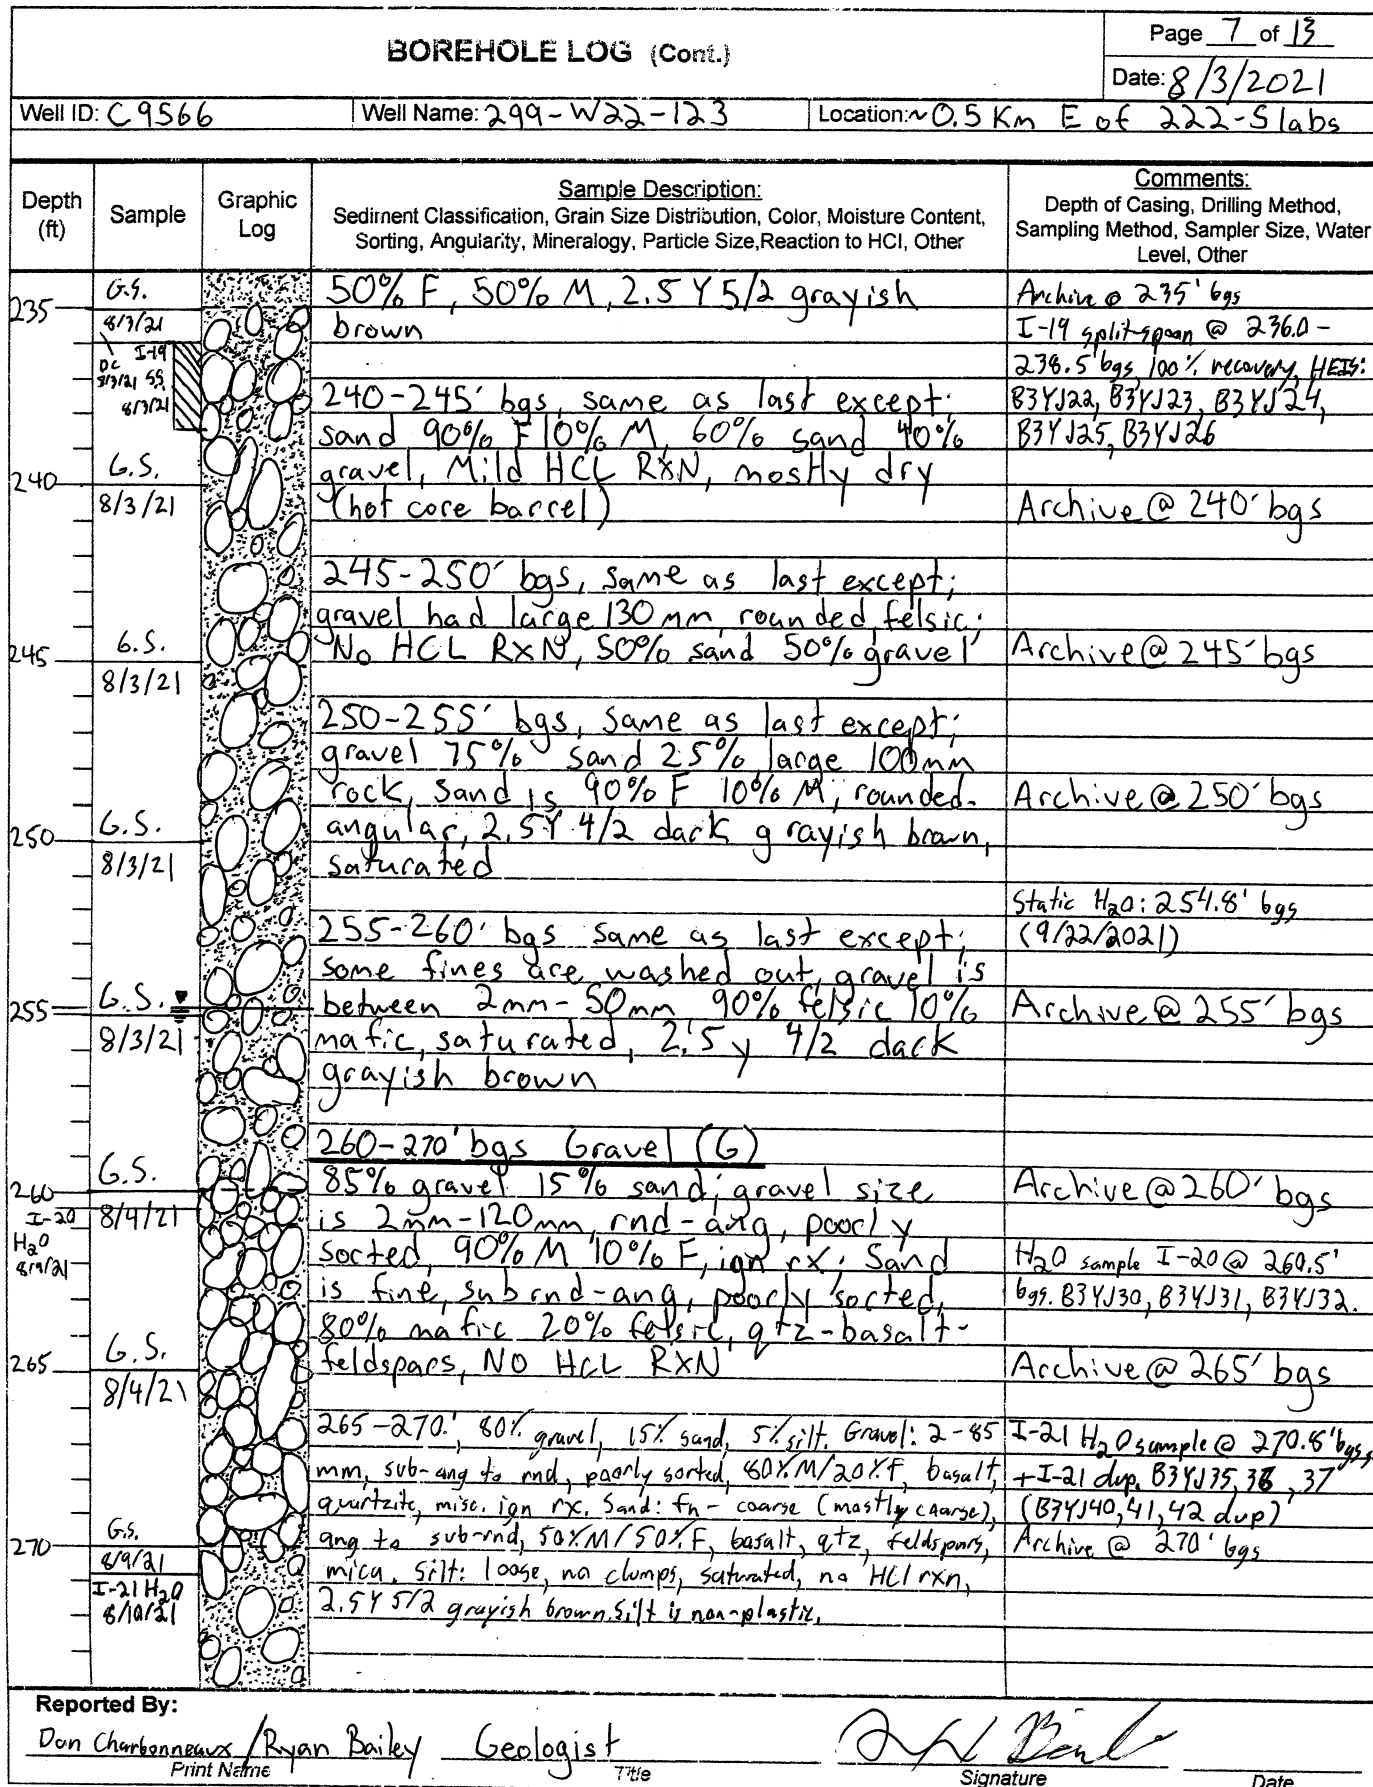 BOREHOLE LOG (Cont.)
Page 7 of 13
Date: 8/3/2021
Well ID: C9566
Well Name: 299-W22-123
Location: ~0.5 Km E of 222-S labs
Depth (ft)
Sample
Graphic Log
Sample Description:
Sediment Classification, Grain Size Distribution, Color, Moisture Content,
Sorting, Angularity, Mineralogy, Particle Size, Reaction to HCl, Other
Comments:
Depth of Casing, Drilling Method,
Sampling Method, Sampler Size, Water
Level, Other
235
G.S.
8/3/21
DC
8/3/21
I-19
SS
8/3/21
50% F, 50% M, 2.5 Y 5/2 grayish
brown
Archive @ 235' bgs
I-19 split-spoon @ 236.0-
238.5' bgs, 100% recovery, HEIS:
B3YJ22, B3YJ23, B3YJ24,
B3YJ25, B3YJ26
240
G.S.
8/3/21
240-245' bgs, same as last except;
sand 90% F 10% M, 60% sand 40%
gravel, Mild HCL RXN, mostly dry
(hot core barrel)
Archive @ 240' bgs
245
G.S.
8/3/21
245-250' bgs, same as last except;
gravel had large 130mm, rounded, felsic;
No HCL RXN, 50% sand 50% gravel
Archive @ 245' bgs
250
G.S.
8/3/21
250-255' bgs, same as last except;
gravel 75% sand 25% large 100mm
rock, sand is 90% F 10% M, rounded-
angular, 2.5Y 4/2 dark grayish brown,
saturated
Archive @ 250' bgs
Static H2O: 254.8' bgs
(9/22/2021)
255
G.S.
8/3/21
255-260' bgs same as last except;
some fines are washed out, gravel is
between 2mm-50mm, 90% felsic 10%
mafic, saturated, 2.5 y 4/2 dark
grayish brown
Archive @ 255' bgs
260
G.S.
8/4/21
I-20
H2O
8/9/21
260-270' bgs Gravel (G)
85% gravel 15% sand; gravel size
is 2mm-120mm, rnd-ang, poorly
sorted, 90% M 10% F, ign rx; Sand
is fine, subrnd-ang, poorly sorted,
80% mafic 20% felsic, qtz-basalt-
feldspars, NO HCL RXN
Archive @ 260' bgs
H2O sample I-20 @ 260.5'
bgs. B3YJ30, B3YJ31, B3YJ32.
265
G.S.
8/4/21
Archive @ 265' bgs
265-270', 80% gravel, 15% sand, 5% silt. Gravel: 2-85
mm, sub-ang to rnd, poorly sorted, 80%M/20%F, basalt,
quartzite, misc. ign rx. Sand: fn-coarse (mostly coarse),
ang to sub-rnd, 50%M/50%F, basalt, qtz, feldspars,
mica. Silt: loose, no clumps, saturated, no HCl rxn,
2.5Y 5/2 grayish brown. Silt is non-plastic.
I-21 H2O sample @ 270.8' bgs,
+ I-21 dup. B3YJ35, 36, 37
(B3YJ40, 41, 42 dup)
Archive @ 270' bgs
270
G.S.
8/9/21
I-21 H2O
8/10/21
Reported By:
Dan Charbonneaux / Ryan Bailey
Print Name
Geologist
Title
Signature
Date